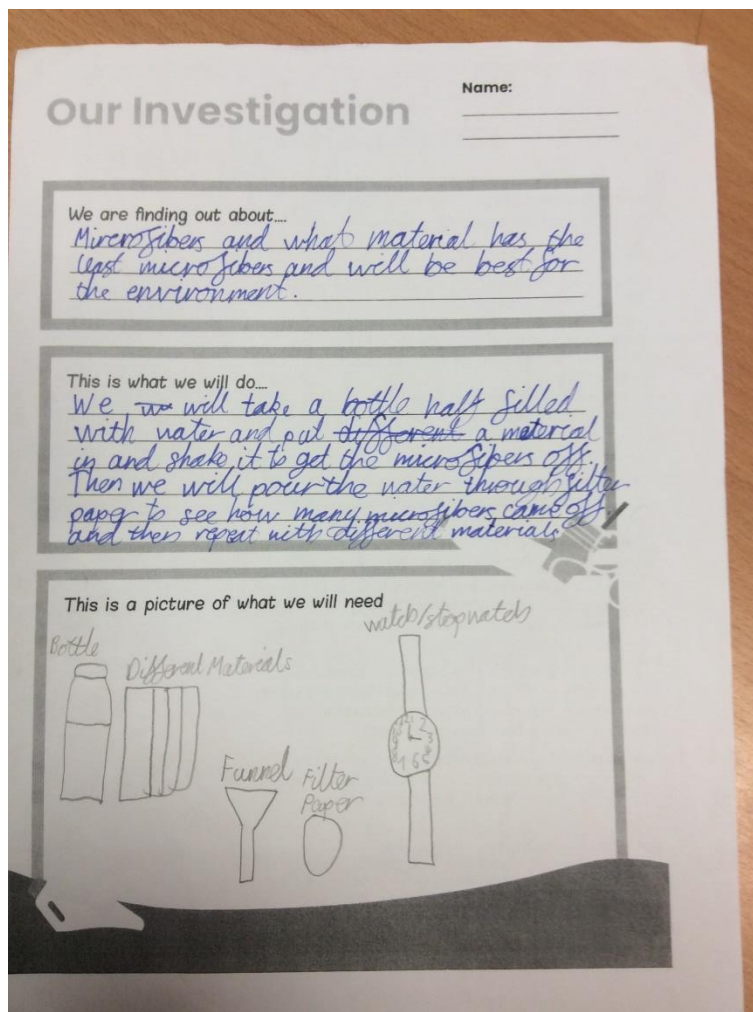 Our Investigation
Name:
We are finding out about....
Mircrofibers and what material has the
least microfibers and will be best for
the environment.
This is what we will do....
We will take a bottle half filled
with water and put different a material
in and shake it to get the microfibers off.
Then we will pour the water through filter
paper to see how many microfibers came off
and then repeat with different materials
This is a picture of what we will need
watch/stopwatch
Bottle
Different Materials
Funnel
Filter
Paper